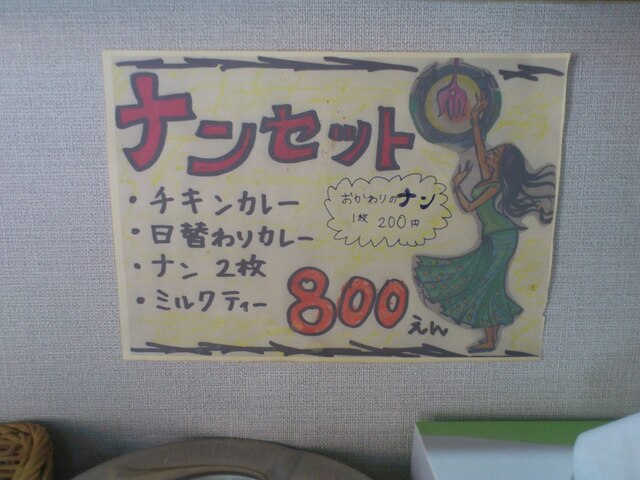 ナンセット
・チキンカレー
・日替わりカレー
・ナン 2枚
・ミルクティー
おかわりのナン
1枚 200円
800えん